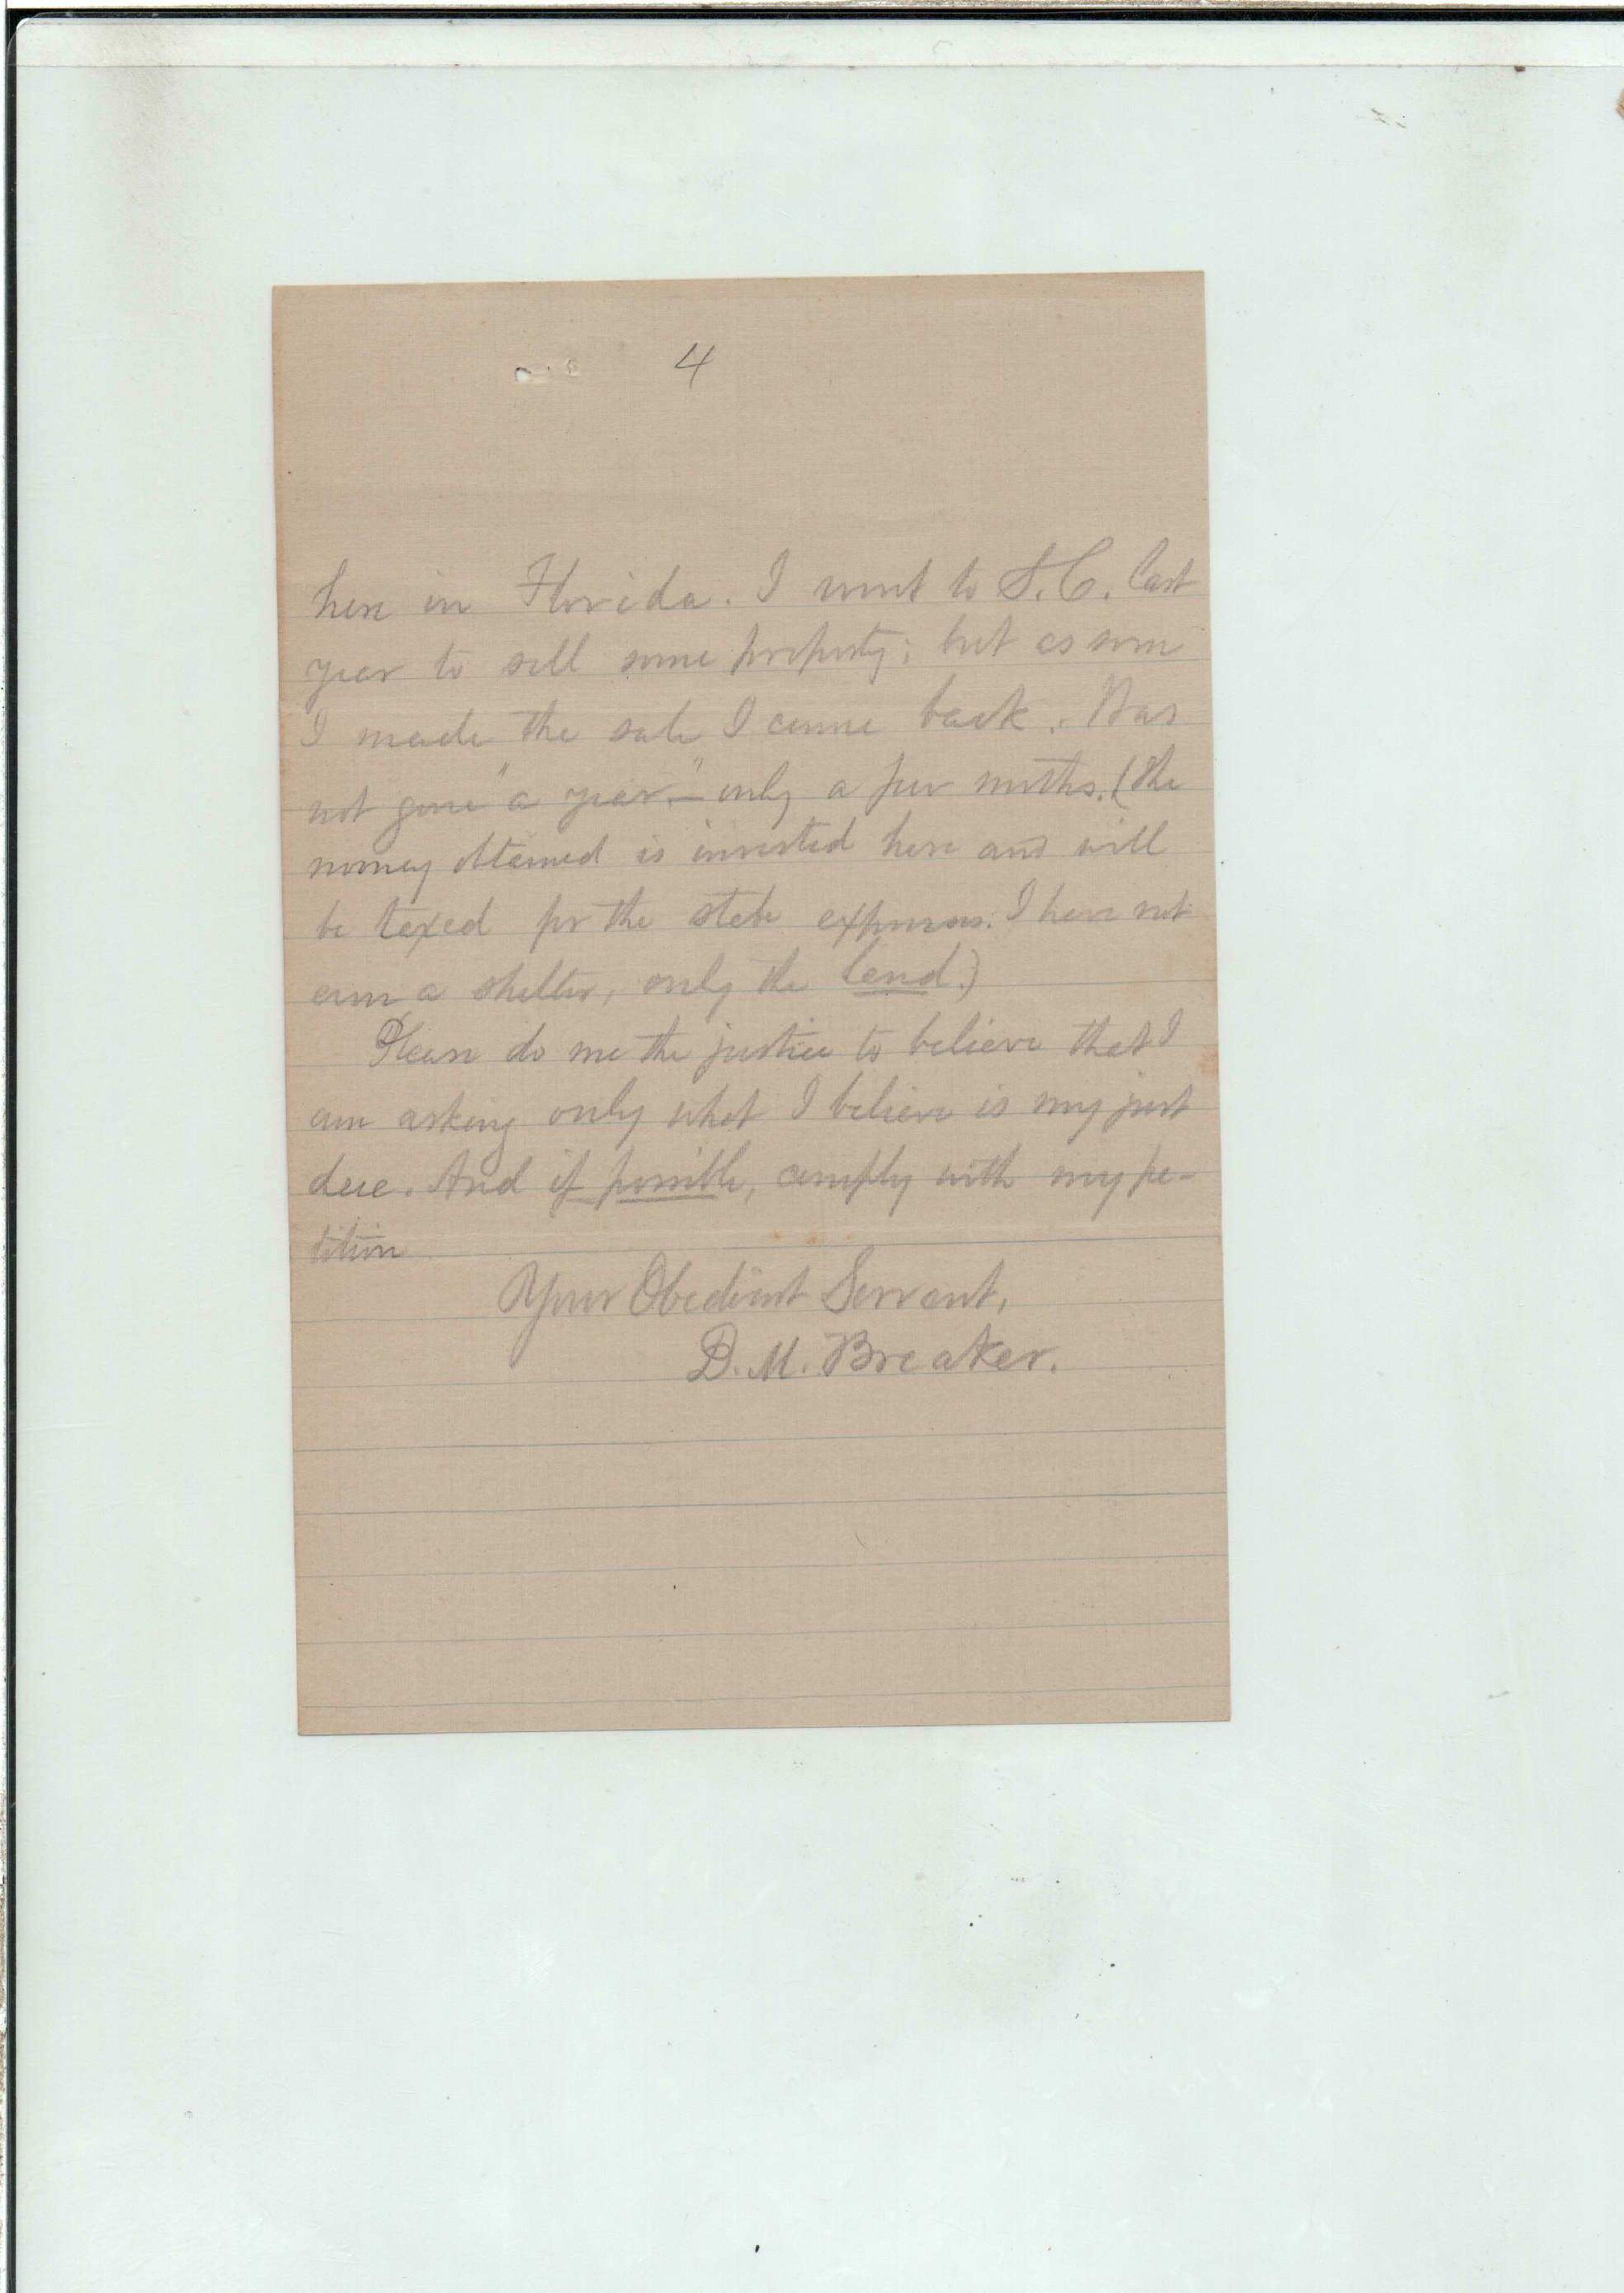 4
here in Florida. I went to S.C. last
year to sell some property; but as soon
I made the sale I came back. Was
not gone "a year"— only a few months. (The
money obtained is invested here and will
be taxed for the state expenses. I have not
even a shelter, only the land.)
Please do me the justice to believe that I
am asking only what I believe is my just
due. And if possible, comply with my pe-
tition
Your Obedient Servant,
D. M. Breaker.